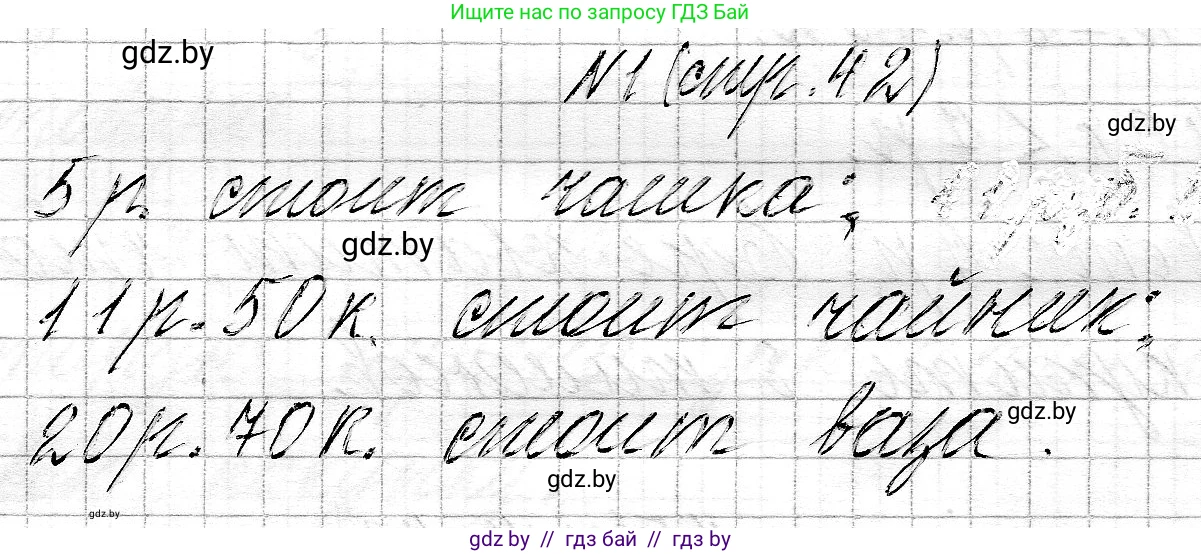 Ищите нас по запросу ГДЗ Бай
gdz.by
N1 (стр. 42)
gdz.by
5 р. стоит чашка;
gdz.by
11 р. 50 к. стоит чайник;
20 р. 70 к. стоит ваза.
gdz.by
gdz.by
gdz.by
gdz by // гдз бай // гдз by